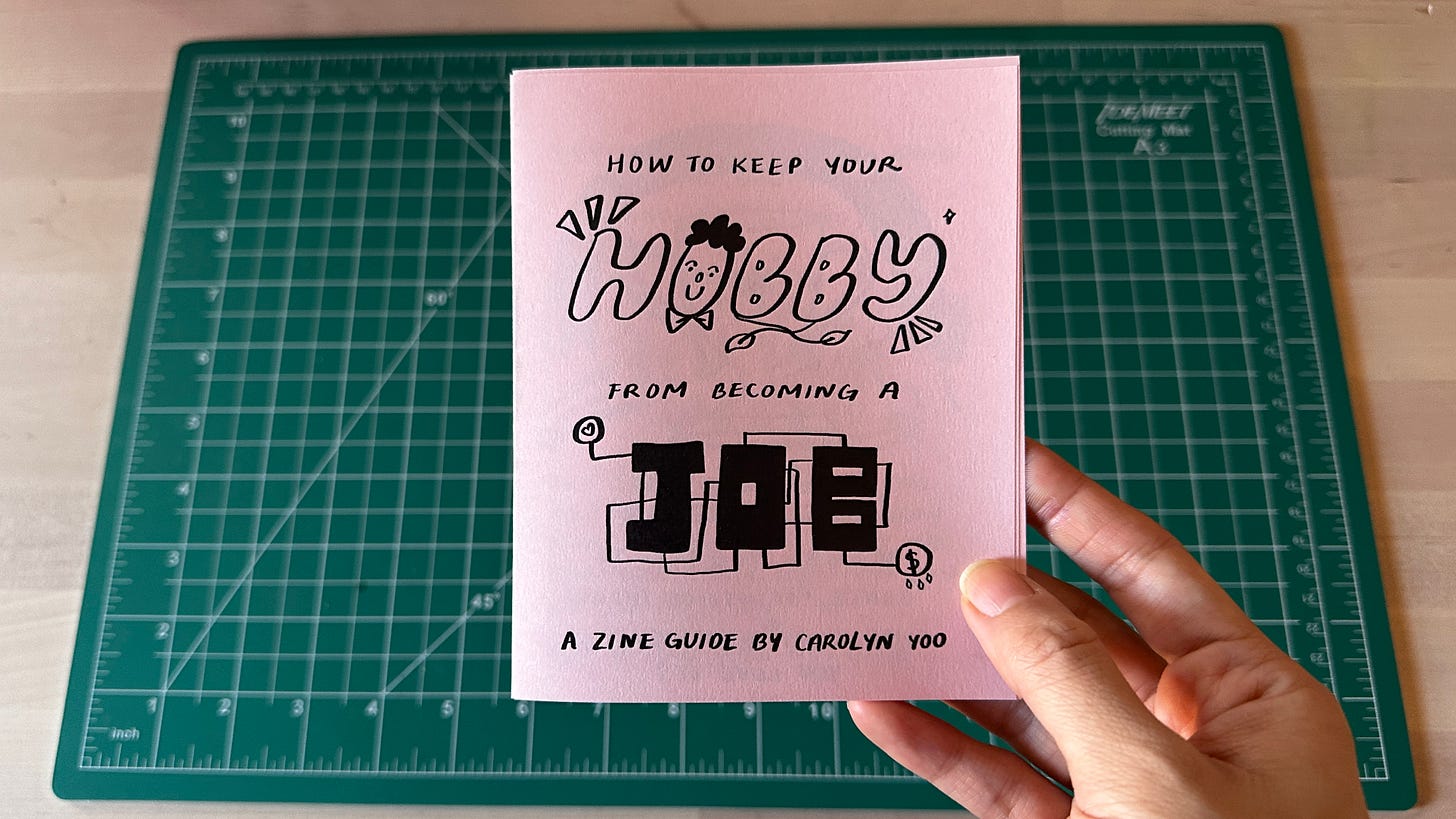 HOW TO KEEP YOUR
HOBBY
FROM BECOMING A
JOB
A ZINE GUIDE BY CAROLYN YOO
Cutting Mat
A3
10
9
8
7
60°
5
4
3
2
45°
1 2 3 4 5 6 7 8 9 10
inch